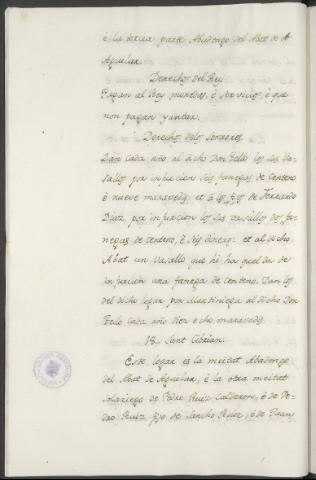 é la tercia parte Abadengo del Abat de
Aguilar.
Derechos del Rey
Pagan al Rey monedas, é servicios, é que
non pagan yantar.
Derechos delos Señores
Dan cada año al dicho Don Tello los sus Va-
sallos por infurcion seis fanegas de Centeno
é nueve maravedis, et á los fijos de Ferrando
Diaz por infurcion los sus vasallos dos fa-
negas de centeno, é seis dineros. et al dicho
Abat un vasallo que hi ha quel da de
infurcion una fanega de Centeno. Dan los
del dicho logar por Martiniega al dicho Don
Tello cada año diez é ocho maravedis
18. Sant Cibrian.
Este logar es la meitat Abadengo
del Abat de Aguilar, é la otra meitat
Solariego de Pedro Ruiz Calderon, é de Pe-
dro Ruiz, fijo de Sancho Ruiz, é de Juan